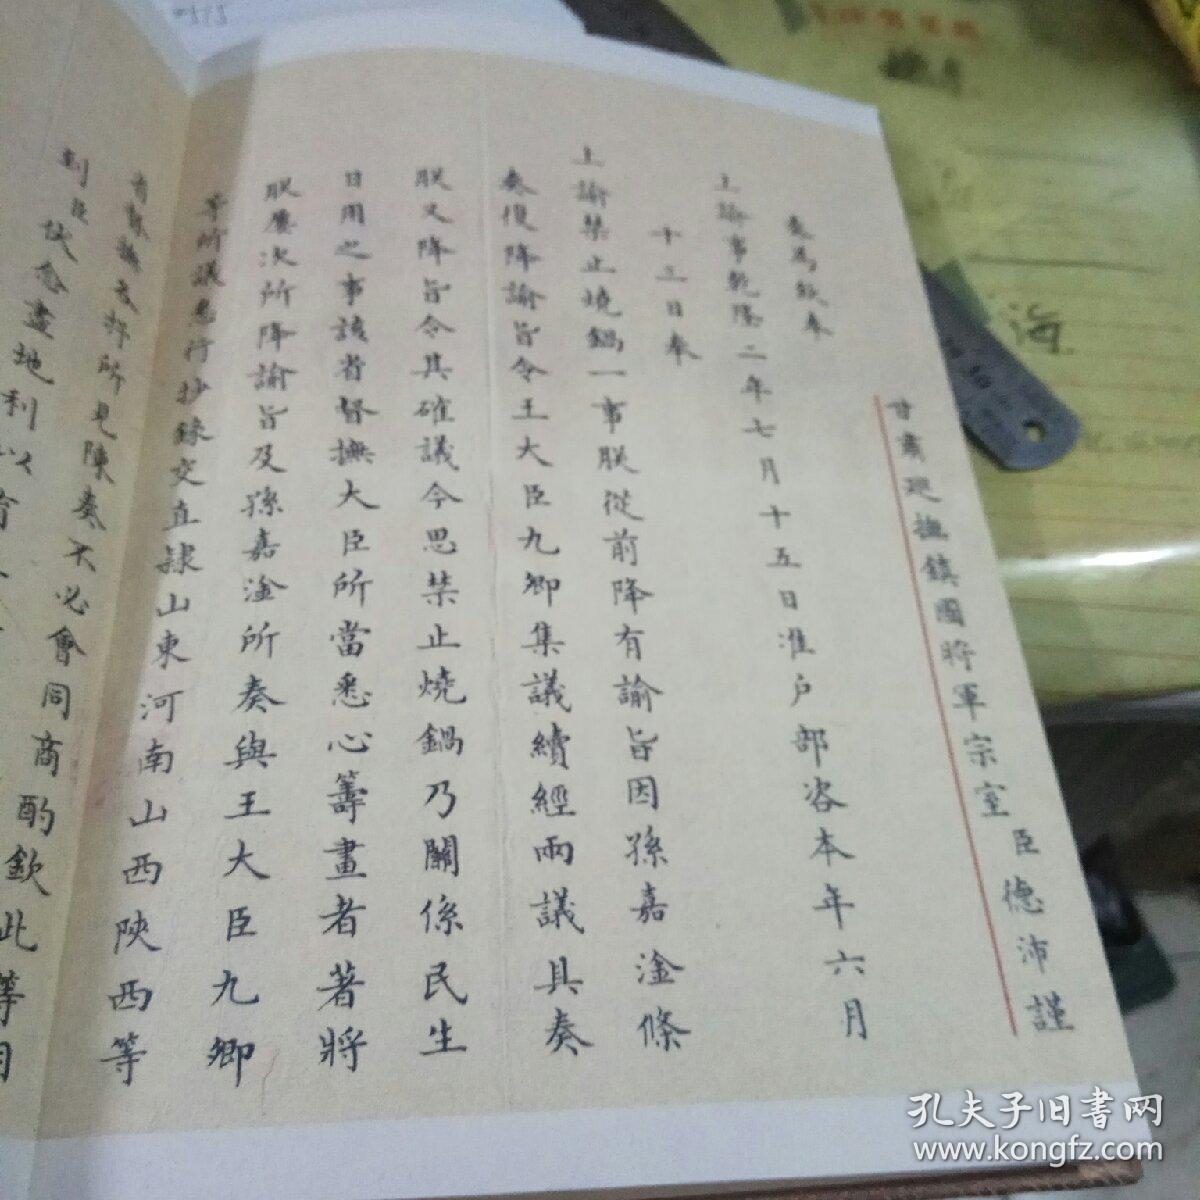 甘肅廵撫鎮國將軍宗室臣德沛謹
奏為欽奉
上諭事乾隆二年七月十五日准户部咨本年六月
十三日奉
上諭禁止燒鍋一事朕從前降有諭旨因孫嘉淦條
奏復降諭旨令王大臣九卿集議續經兩議具奏
朕又降旨令其確議今思禁止燒鍋乃關係民生
日用之事該省督撫大臣所當悉心籌畫者著將
朕屢次所降諭旨及孫嘉淦所奏與王大臣九卿
等所議悉行抄錄交直隸山東河南山西陝西等
省督撫各抒所見陳奏不必會同商酌欽此等因
到臣伏念盡地利以
海
孔夫子旧书网
www.kongfz.com